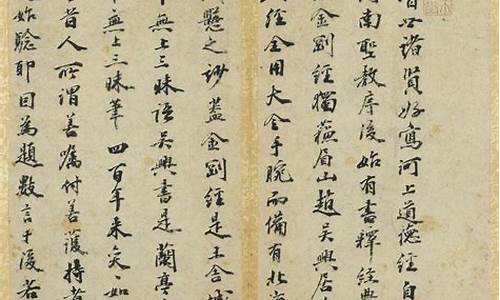 諸賢好寫河上道德經自
河南聖教序後始有書釋經典
金剛經獨蘇眉山趙吳興居
經全用大令手腕而備有北
懸之妙蓋金剛經是王舍城
中無上三昧語吳興書是蘭亭
中無上三昧筆四百年來矣〻如
昔人所謂善囑付善護持者
始驗耶因為題數言于後若